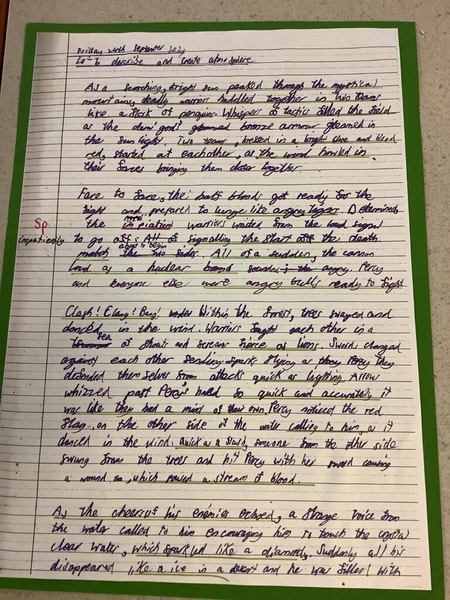 Friday 24th September 2021
Lo - To describe and create atmosphere
As a scorching, bright sun peaked through the mystical
mountains, deadly warriors huddled together in two teams
like a flock of penguins. Whisper of tactics filled the field
as the demi gods glammed bronze armour gleamed in
the sun light. Two teams, dressed in a bright blue and blood
red, started at eachother, as the wind howled in
their faces bringing them closer together.
Face to face, the half bloods got ready for the
fight and prepared to lunge like angry tigers. Determined,
Sp
impatiently
the warriors waited from the loud signal
to go off: signalling the start of the death
match the two sides. All of a sudden, the cannon
loud as a nuclear bomb sounded. Percy
and everyone else were angry bulls ready to fight
Clash! Clang! Bang! Within the forest, trees swayed and
danced in the wind. Warriors fought each other in a
sea of shout and screams fierce as lions. Sword clanged
against each other sending spark flying as they
defended them selves from attacks quick as lighting. Arrow
whizzed past Percy's head so quick and accurately it
was like they had a mind of their own. Percy noticed the red
flag, on the other side of the water calling to him, as it
danced in the wind. Quick as a flash, someone from the other side
swung from the trees and hit Percy with her sword causing
a wound, which poured a stream of blood.
As the cheers of his enemies echoed, a strange voice from
the water called to him encouraging him to touch the crystal
clear water, which sparkled like a diamond. Suddenly all his
disappeared like a ice in a desert and he was filled with